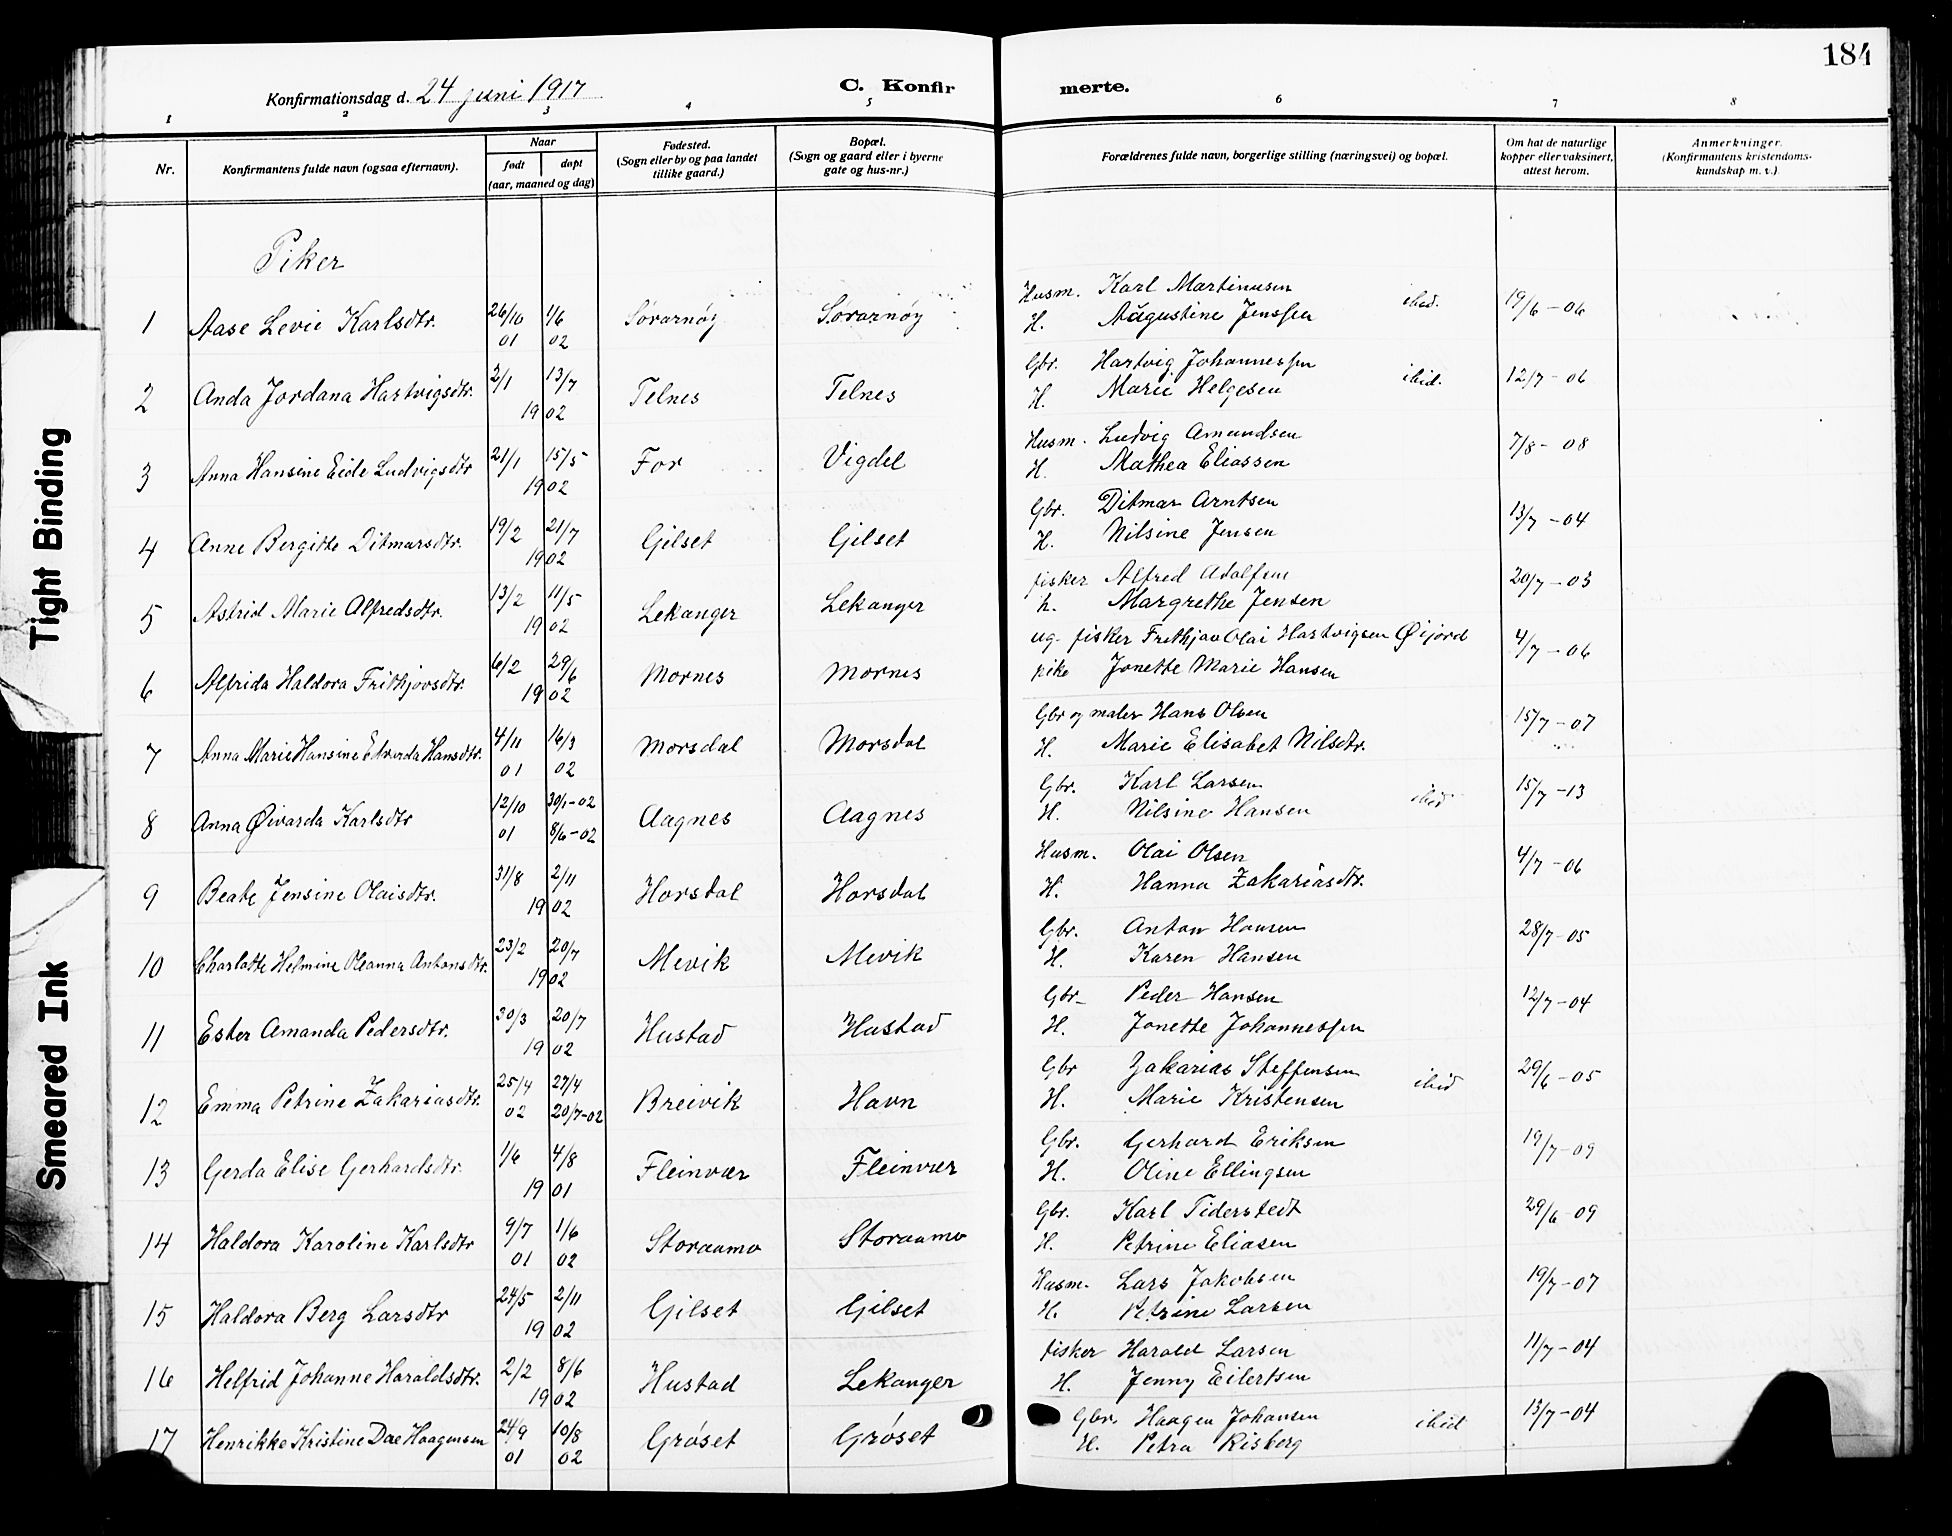 184
Konfirmationsdag d. 24 juni 1917
C. Konfir merte.
1 2 3 4 5 6 7 8
Nr. Konfirmantens fulde navn (ogsaa efternavn). Naar født døpt (aar, maaned og dag) Fødested. (Sogn eller by og paa landet tillike gaard.) Bopæl. (Sogn og gaard eller i byerne gate og hus-nr.) Forældrenes fulde navn, borgerlige stilling (næringsvei) og bopæl. Om hat de naturlige kopper eller vaksinert, attest herom. Anmerkninger. (Konfirmantens kristendoms-kundskap m. v.)
Piker
1 Aase Levie Karlsdtr. 26/10 01 1/6 02 Sørarnøy Sørarnøy Husm. Karl Martinusen ibid. 19/6 - 06
H. Augustine Jenssen
2 Anda Jordana Hartvigsdtr. 2/1 13/7 1902 Telnes Telnes Gbr. Hartvig Johannessen ibid. 12/7 - 06
H. Marie Helgesen
3 Anna Hansine Eide Ludvigsdtr 21/1 15/5 1902 For Vigdel Husm. Ludvig Amundsen 7/8 - 08
H. Mathea Eliassen
4 Anne Bergitte Ditmarsdtr. 19/2 21/7 1902 Gilset Gilset Gbr. Ditmar Arntsen 13/7 - 04
H. Nilsine Jensen
5 Astrid Marie Alfredsdtr. 13/2 11/5 1902 Lekanger Lekanger fisker Alfred Adolfsen 20/7 - 03
h. Margrethe Jensen
6 Alfrida Haldora Frithjovsdtr. 6/2 29/6 1902 Mornes Mornes ug. fisker Frithjov Olai Hartvigsen Øijord 4/7 - 06
pike Jonette Marie Hansen
7 Anna Marie Hansine Edvarda Hansdtr. 4/11 01 16/3 02 Morsdal Morsdal Gbr og maler Hans Olsen 15/7 - 07
H. Marie Elisabet Nilsdtr.
8 Anna Øivarda Karlsdtr 12/10 01 30/1 - 02 8/6 - 02 Aagnes Aagnes Gbr. Karl Larsen ibid 15/7 - 13
H. Nilsine Hansen
9 Beate Jensine Olaisdtr. 31/8 2/11 1902 Horsdal Horsdal Husm. Olai Olsen 4/7 - 06
H. Hanna Zakariasdtr.
10 Charlotte Helmine Oleanna Antonsdtr. 23/2 20/7 1902 Mevik Mevik Gbr. Anton Hansen 28/7 - 05
H. Karen Hansen
11 Ester Amanda Pedersdtr. 30/3 20/7 1902 Hustad Hustad Gbr. Peder Hansen 12/7 - 04
H. Jonette Johannessen
12 Emma Petrine Zakariasdtr. 25/4 02 27/4 20/7 - 02 Breivik Havn Gbr Zakarias Steffensen ibid 29/6 - 05
H. Marie Kristensen
13 Gerda Elise Gerhardsdtr. 1/6 4/8 1901 Fleinvær Fleinvær Gbr. Gerhard Eriksen 19/7 - 09
H. Oline Ellingsen
14 Haldora Karoline Karlsdtr 9/7 01 1/6 02 Storaamo Storaamo Gbr. Karl Tiderstedt 29/6 - 09
H. Petrine Eliasen
15 Haldora Berg Larsdtr 24/5 2/11 1902 Gilset Gilset Husm. Lars Jakobsen 19/7 - 07
H. Petrine Larsen
16 Helfrid Johanne Haraldsdtr. 2/2 8/6 1902 Hustad Lekanger fisker Harald Larsen 11/7 - 04
H. Jenny Eilertsen
17 Henrikke Kristine Dae Haagensen 24/9 01 10/8 02 Grøset Grøset Gbr. Haagen Johansen ibid 13/7 - 04
H. Petra Risberg
Tight Binding
Smeared Ink